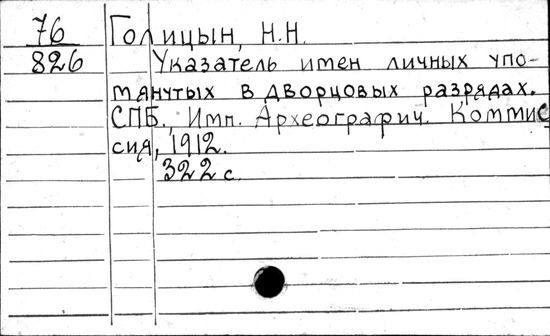 76 Голицын, Н.Н.
826 Указатель имен личных упо-
мянутых в дворцовых разрядах.
СПБ., Имп. Археографич. Коммис
сия, 1912.
322 с.